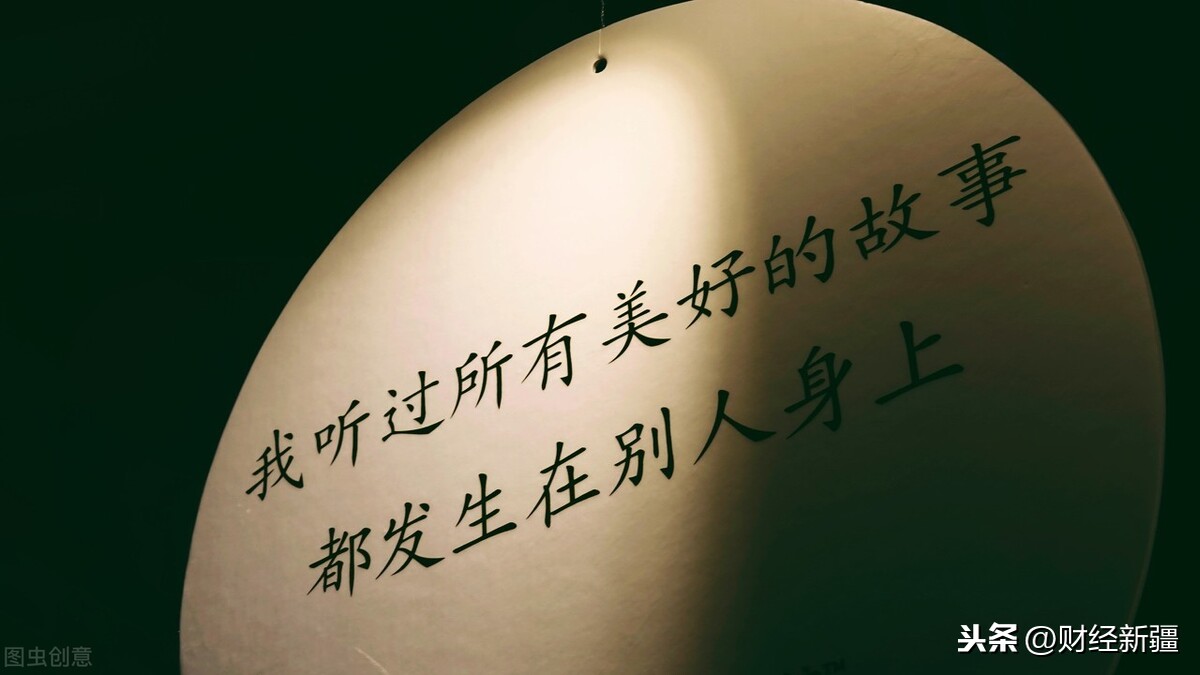 我听过所有美好的故事
都发生在别人身上
图虫创意
头条 @财经新疆